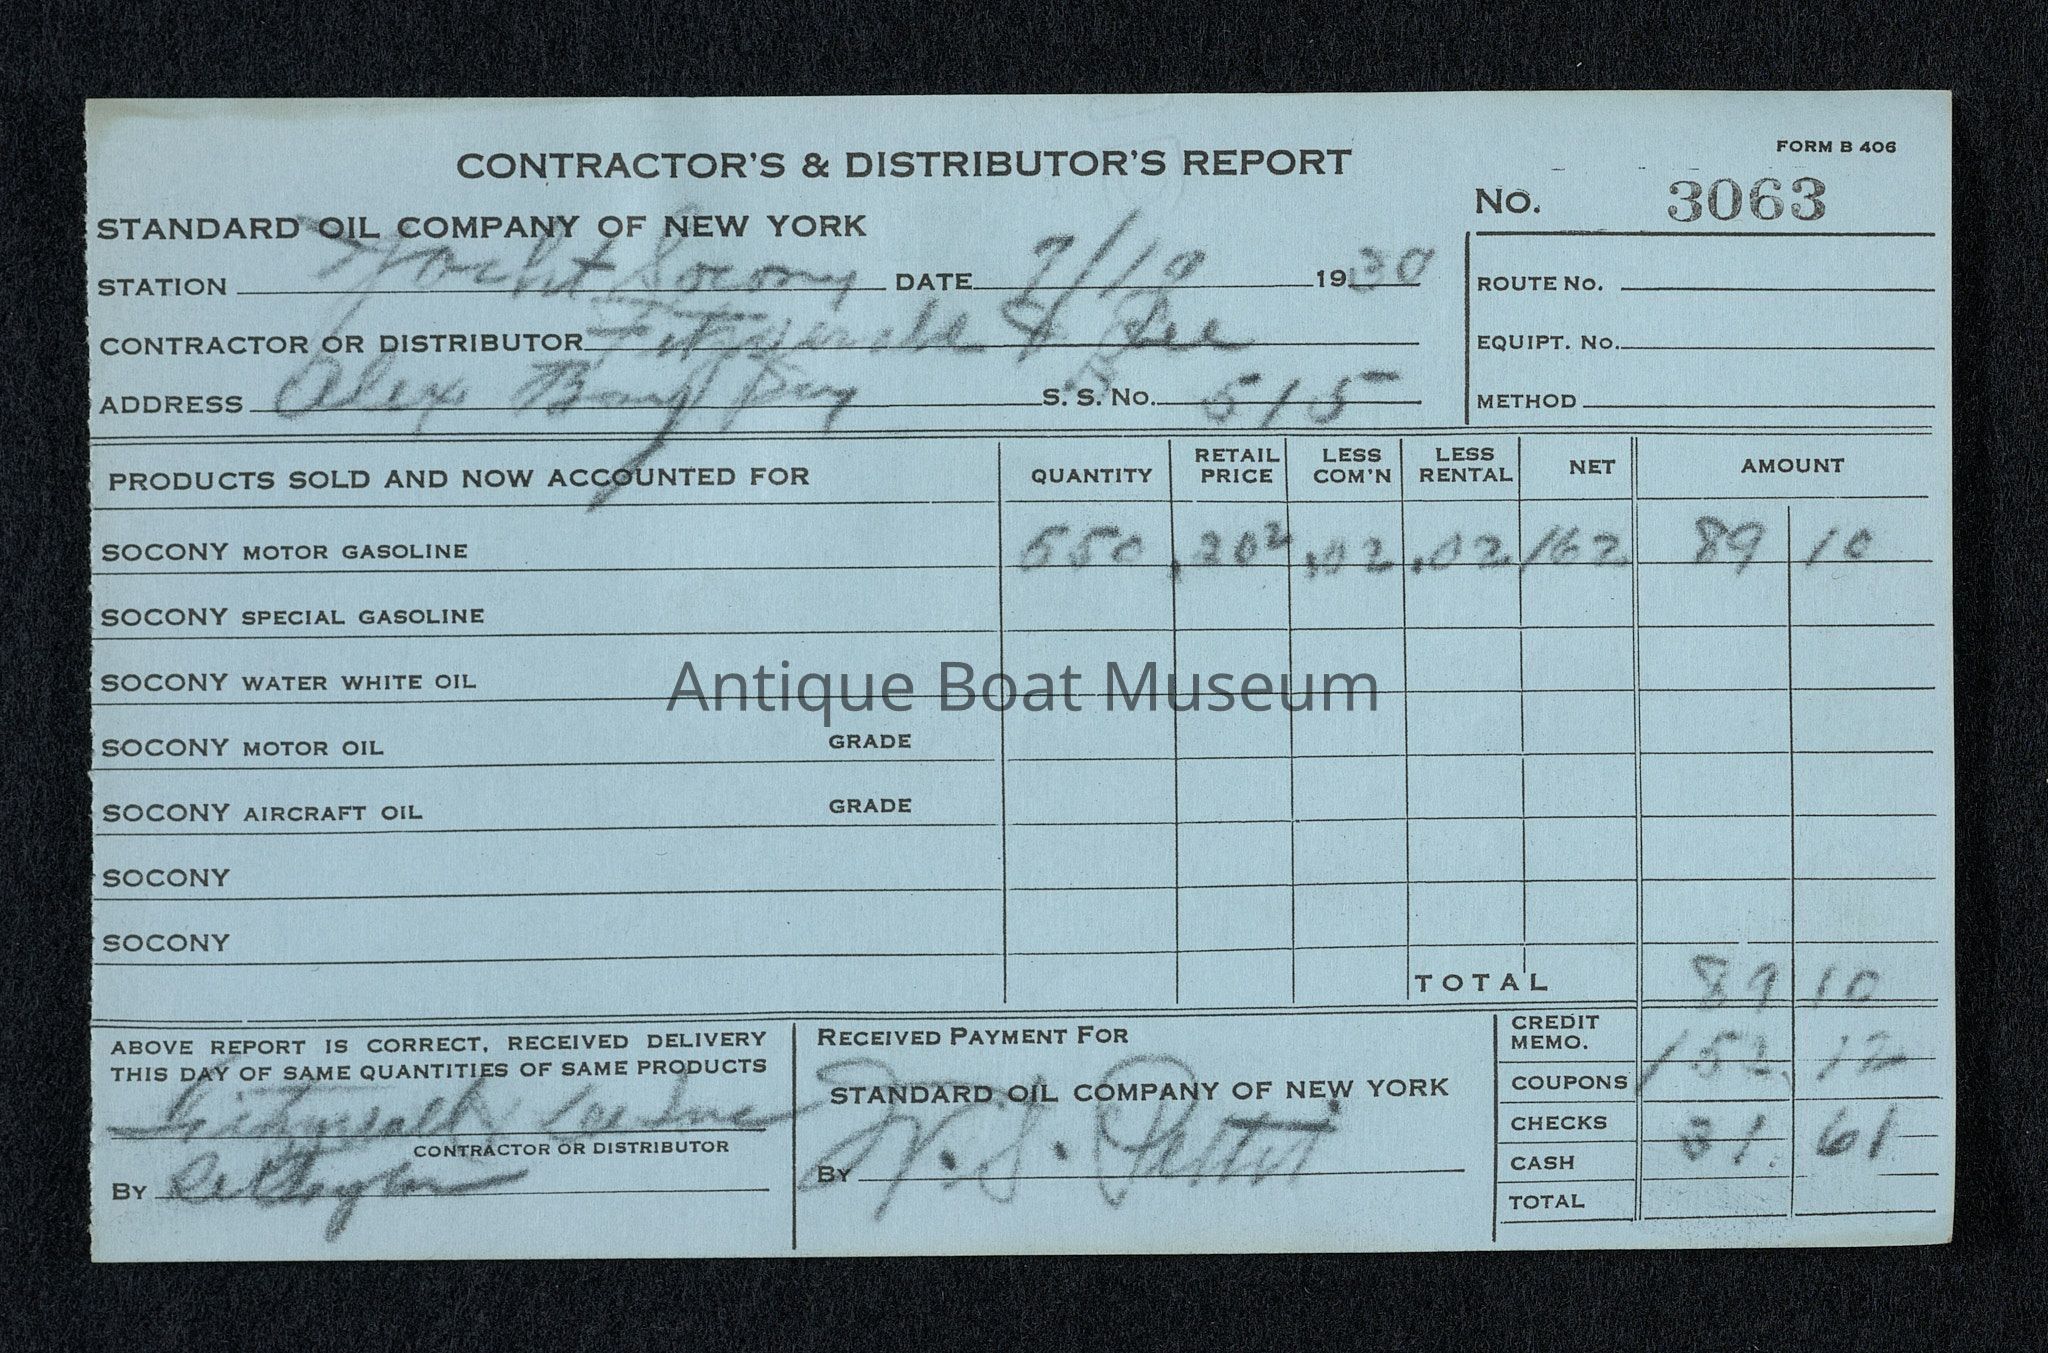 FORM B 406
CONTRACTOR'S & DISTRIBUTOR'S REPORT
No. 3063
STANDARD OIL COMPANY OF NEW YORK
STATION Yacht Socony DATE 7/19 1930
ROUTE No.
CONTRACTOR OR DISTRIBUTOR Fitzgerald & Lee
EQUIPT. No.
ADDRESS Alex Bay S. S. No. 515
METHOD
PRODUCTS SOLD AND NOW ACCOUNTED FOR QUANTITY RETAIL PRICE LESS COM'N LESS RENTAL NET AMOUNT
SOCONY MOTOR GASOLINE 550 .202 .02 .02 162 89 10
SOCONY SPECIAL GASOLINE
SOCONY WATER WHITE OIL
Antique Boat Museum
SOCONY MOTOR OIL GRADE
SOCONY AIRCRAFT OIL GRADE
SOCONY
SOCONY
TOTAL 89 10
ABOVE REPORT IS CORRECT, RECEIVED DELIVERY
THIS DAY OF SAME QUANTITIES OF SAME PRODUCTS
Fitzgerald & Lee Inc
CONTRACTOR OR DISTRIBUTOR
BY
RECEIVED PAYMENT FOR
STANDARD OIL COMPANY OF NEW YORK
BY W. S.
CREDIT MEMO. 12
COUPONS
CHECKS 31 61
CASH
TOTAL